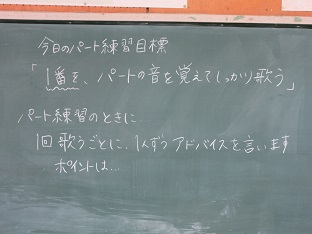 今日のパート練習目標
「1番を、パートの音を覚えてしっかり歌う」
パート練習のときに
1回歌うごとに、1人ずつアドバイスを言います
ポイントは…